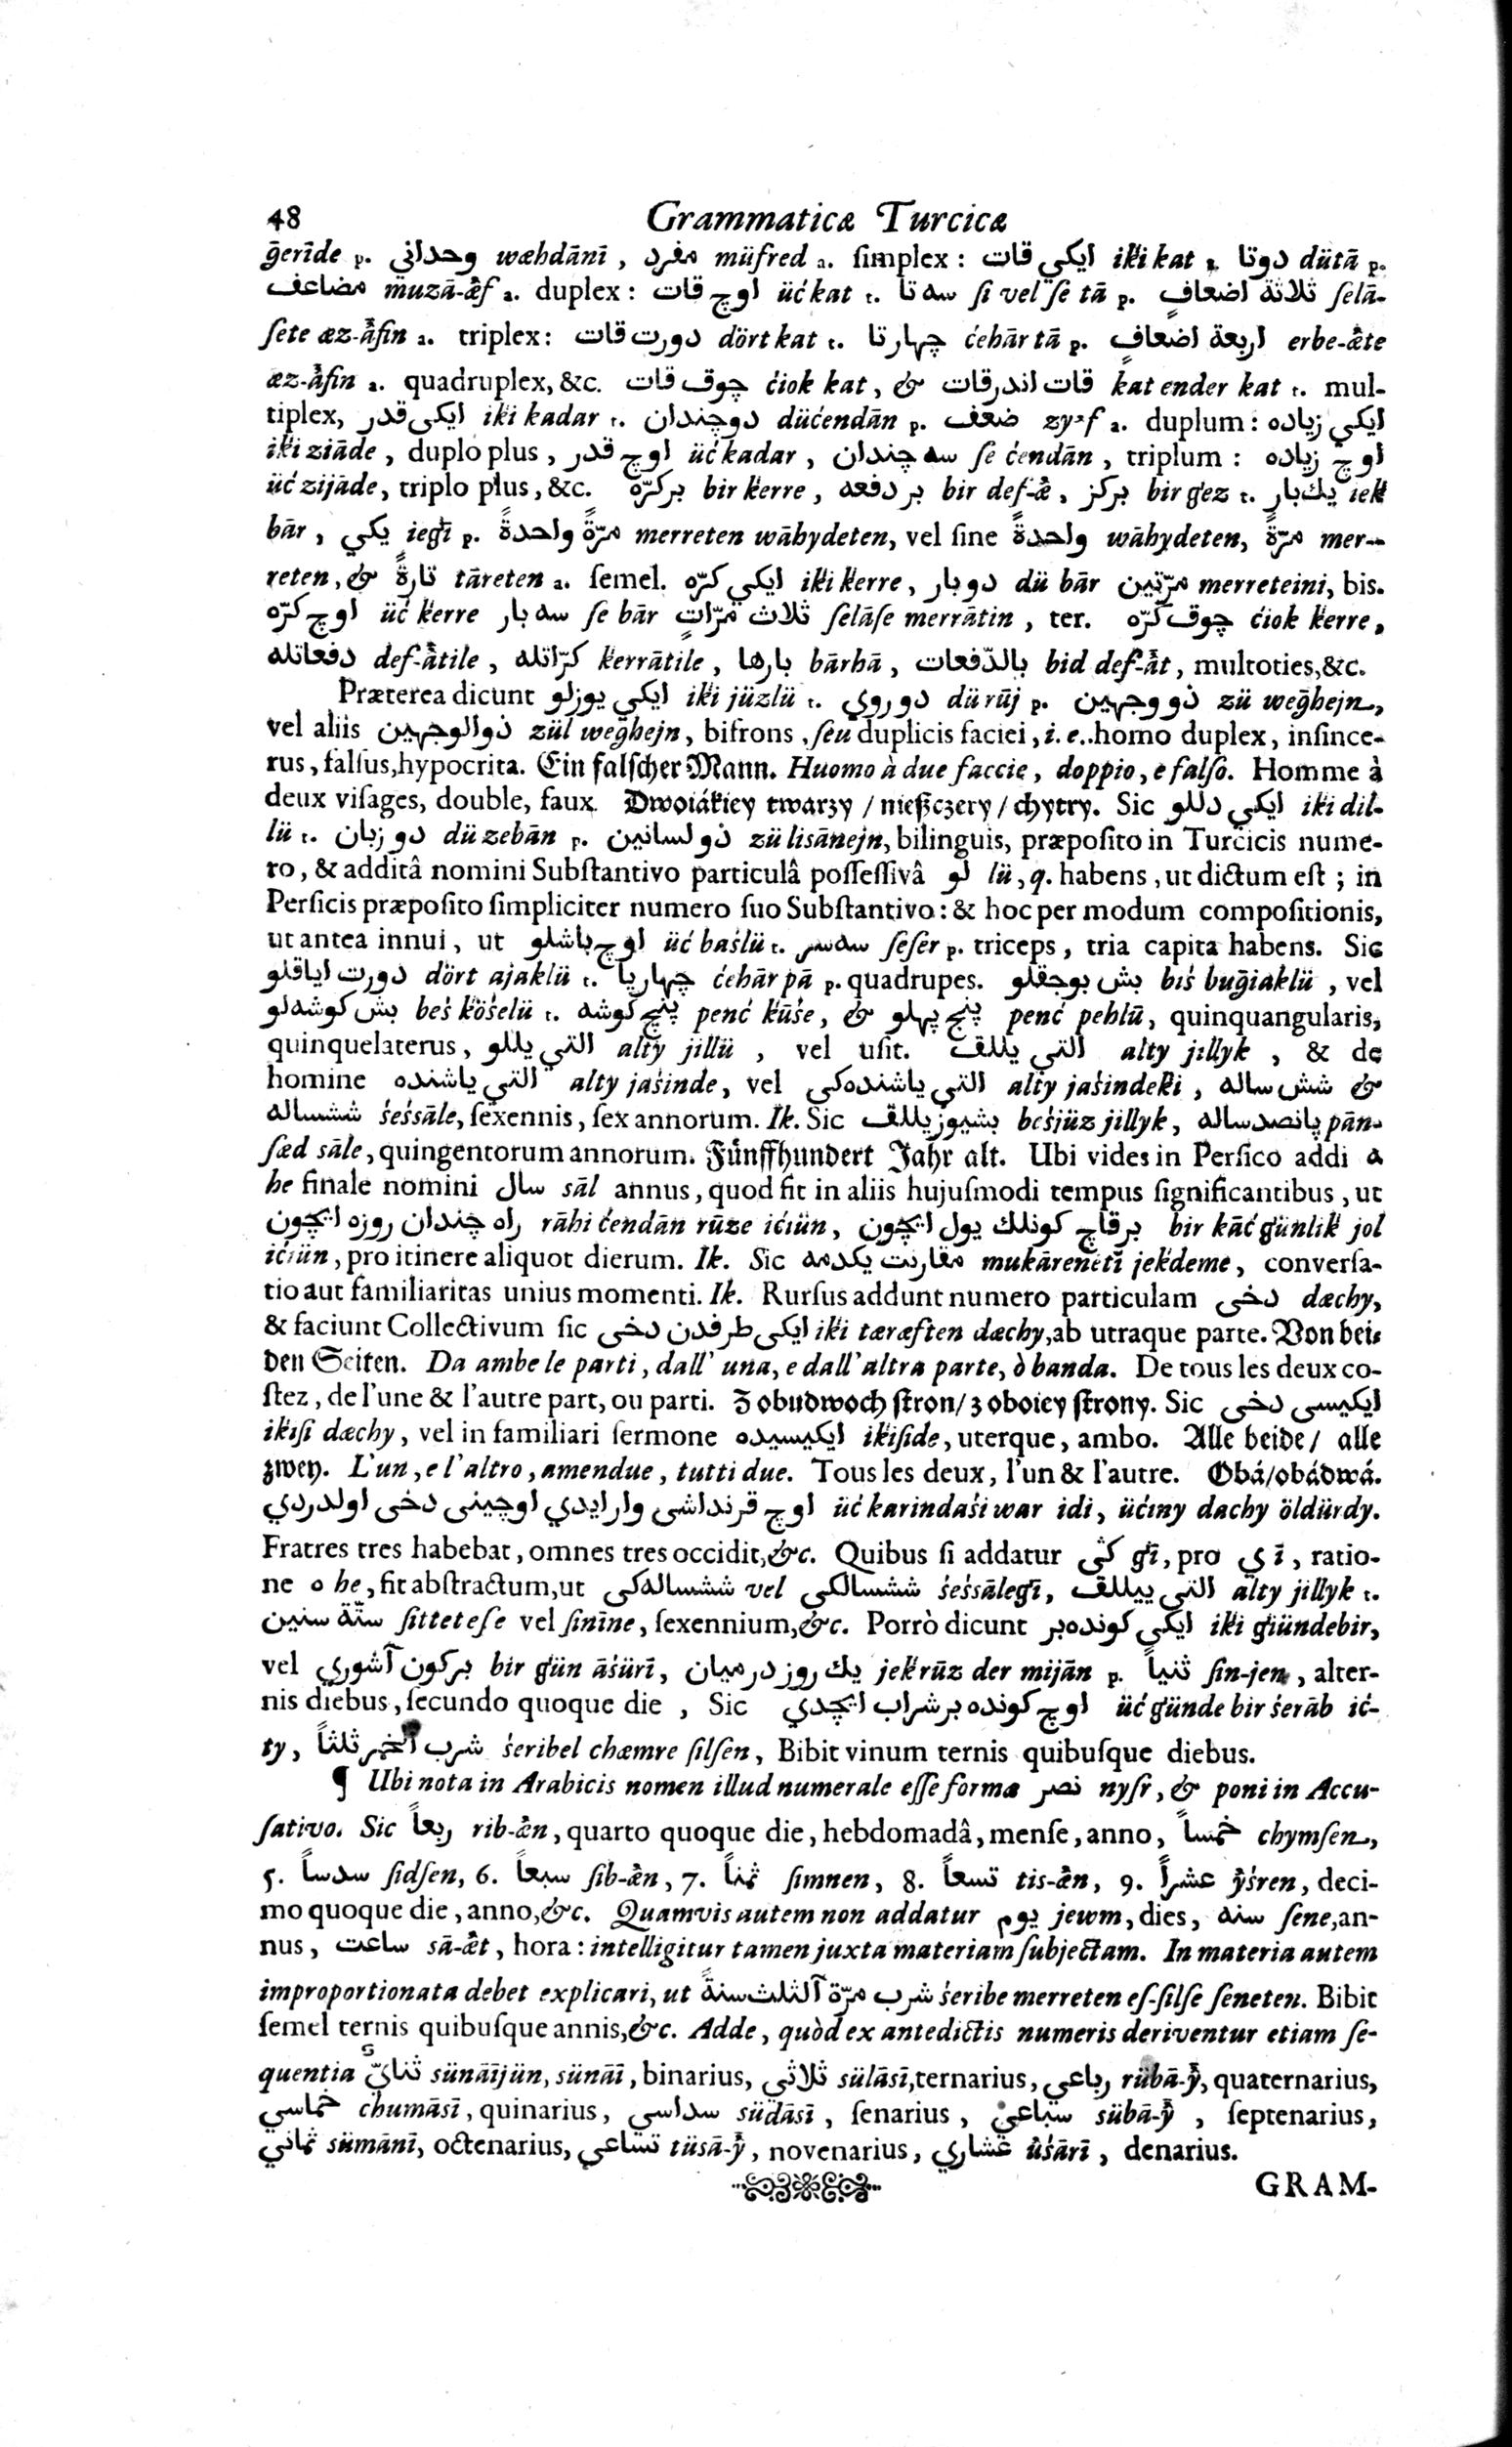 48 Grammaticæ Turcicæ
g̃erīde p. وحداني wæhdānī, مفرد müfred a. ſimplex: ايكي قات iki kat t. دوتا dütā p.
مضاعف muzā-æ̊f a. duplex: اوچ قات üć kat t. سه تا ſi vel ſe tā p. ثلاثة اضعافٍ ſelā-
ſete æz-åfin a. triplex: دورت قات dört kat t. چهارتا ćehār tā p. اربعة اضعافٍ erbe-æ̊te
æz-åfin a. quadruplex, &c. چوق قات ćiok kat, & قات اندرقات kat ender kat t. mul-
tiplex, ايكى قدر iki kadar t. دوچندان düćendān p. ضعف zyʾf a. duplum: ايكي زياده
iki ziāde, duplo plus, اوچ قدر üć kadar, سه چندان ſe ćendān, triplum: اوچ زياده
üć zijāde, triplo plus, &c. بركرّه bir kerre, بر دفعه bir def-æ̊, بركز bir gez t. يك بار iek
bār, يكي iegī p. مرّةً واحدةً merreten wāhydeten, vel ſine واحدةً wāhydeten, مرّةً mer-
reten, & تارةً tāreten a. ſemel. ايكي كرّه iki kerre, دو بار dü bār مرّتين merreteini, bis.
اوچ كرّه üć kerre سه بار ſe bār ثلاث مرّاتٍ ſelāſe merrātin, ter. چوق كرّه ćiok kerre,
دفعاتله def-åtile, كرّاتله kerrātile, بارها bārhā, بالدّفعات bid def-åt, multoties, &c.
Præterea dicunt ايكي يوزلو iki jüzlü t. دو روي dü rūj p. ذو وجهين zü weg̃hejn,
vel aliis ذوالوجهين zül weg̃hejn, bifrons, ſeu duplicis faciei, i. e. homo duplex, inſince-
rus, falſus, hypocrita. Ein falſcher Mann. Huomo à due faccie, doppio, e falſo. Homme à
deux viſages, double, faux. Dwoiákiey twarzy / nießczery / chytry. Sic ايكي دللو iki dil-
lü t. دو زبان dü zebān p. ذو لسانين zü lisānejn, bilinguis, præpoſito in Turcicis nume-
ro, & additâ nomini Subſtantivo particulâ poſſeſſivâ لو lü, q. habens, ut dictum eſt; in
Perſicis præpoſito ſimpliciter numero ſuo Subſtantivo: & hoc per modum compoſitionis,
ut antea innui, ut اوچ باشلو üć baślü t. سه سر ſeſer p. triceps, tria capita habens. Sic
دورت اياقلو dört ajaklü t. چهارپا ćehār pā p. quadrupes. بش بوجقلو biś bug̃iaklü, vel
بش كوشه لو beś köśelü t. پنج كوشه penć kūśe, & پنج پهلو penć pehlū, quinquangularis,
quinquelaterus, التي يللو alty jillü, vel uſit. التي يللق alty jıllyk, & de
homine التي ياشنده alty jaśinde, vel التي ياشنده كى alty jaśindeki, شش ساله &
ششساله śeśsāle, ſexennis, ſex annorum. Ik. Sic بشيوز يللق beśjüz jillyk, پانصد ساله pān-
ſæd sāle, quingentorum annorum. Fünffhundert Jahr alt. Ubi vides in Perſico addi ه
he finale nomini سال sāl annus, quod fit in aliis hujuſmodi tempus ſignificantibus, ut
راه چندان روزه ايچون rāhi ćendān rūze ićıün, برقاچ كونلك يول ايچون bir kāć günlik jol
ićıün, pro itinere aliquot dierum. Ik. Sic مقارنت يكدمه mukārenetī jekdeme, converſa-
tio aut familiaritas unius momenti. Ik. Rurſus addunt numero particulam دخى dæchy,
& faciunt Collectivum ſic ايكى طرفدن دخى iki tæræften dæchy, ab utraque parte. Von bei-
den Seiten. Da ambe le parti, dall' una, e dall'altra parte, ò banda. De tous les deux co-
ſtez, de l'une & l'autre part, ou parti. Z obudwoch ſtron/ z oboiey ſtrony. Sic ايكيسى دخى
ikiſi dæchy, vel in familiari ſermone ايكيسيده ikiſide, uterque, ambo. Alle beide/ alle
zwey. L'un, e l'altro, amendue, tutti due. Tous les deux, l'un & l'autre. Obá/obádwá.
اوچ قرنداشى وارايدي اوچينى دخى اولدردي üć karindaśi war idi, üćıny dachy öldürdy.
Fratres tres habebat, omnes tres occidit, &c. Quibus ſi addatur كى gī, pro ي ī, ratio-
ne ه he, fit abſtractum, ut ششساله كى vel ششسالكى śeśsālegī, التي ييللق alty jillyk t.
ستّة سنين ſitteteſe vel ſinīne, ſexennium, &c. Porrò dicunt ايكي كونده بر iki giündebir,
vel بركون آشوري bir gün āśürī, يك روز در ميان jek rūz der mijān p. ثنياً ſin-jen, alter-
nis diebus, ſecundo quoque die, Sic اوچ كونده بر شراب ايچدي üć günde bir śerāb ić-
ty, شرب الخمر ثلثاً śeribel chæmre ſilſen, Bibit vinum ternis quibuſque diebus.
¶ Ubi nota in Arabicis nomen illud numerale eſſe formæ نصر nyſr, & poni in Accu-
ſativo. Sic ربعاً rib-æ̊n, quarto quoque die, hebdomadâ, menſe, anno, خمساً chymſen,
5. سدساً ſidſen, 6. سبعاً ſib-æ̊n, 7. ثمناً ſimnen, 8. تسعاً tis-æ̊n, 9. عشراً ẙśren, deci-
mo quoque die, anno, &c. Quamvis autem non addatur يوم jewm, dies, سنه ſene, an-
nus, ساعت sā-æ̊t, hora: intelligitur tamen juxta materiam ſubjectam. In materia autem
improportionata debet explicari, ut شرب مرّة الثلث سنةً śeribe merreten eſ-ſilſe ſeneten. Bibit
ſemel ternis quibuſque annis, &c. Adde, quòd ex antedictis numeris deriventur etiam ſe-
quentia ثنائيّ sünāījün, sünāī, binarius, ثلاثي sülāsī, ternarius, رباعي rübā-ẙ, quaternarius,
خماسي chumāsī, quinarius, سداسي südāsī, ſenarius, سباعي sübā-ẙ, ſeptenarius,
ثماني sümānī, octenarius, تساعي tüsā-ẙ, novenarius, عشاري ůśārī, denarius.
GRAM-